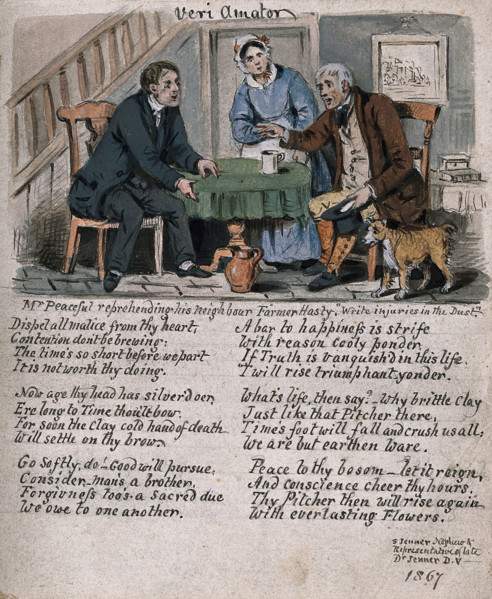 Veri Amator
Mr Peaceful reprehending his neighbour Farmer Hasty, "Write injuries in the Dust"
Dispel all malice from thy heart,
Contention dont be brewing:
The time's so short before we part
It is not worth thy doing.
Now age thy head has silver'd oer,
Ere long to Time thou'lt bow.
For soon the Clay cold hand of death
Will settle on thy brow.
Go Softly, do – Good will pursue,
Consider – man's a brother,
Forgivneſs too's a sacred due
We owe to one another.
A bar to happineſs is strife
With reason cooly ponder,
If Truth is vanquish'd in this life,
T'will rise triumphant yonder.
What's life, then say? – Why brittle Clay
Just like that Pitcher there,
Times foot will fall and crush us all;
We are but earthen Ware.
Peace to thy bosom – let it reign,
And conscience cheer thy hours.
Thy Pitcher then will rise again
With everlasting Flowers.
S Jenner Nephew &
Representative of late
Dr Jenner D.V –
1867